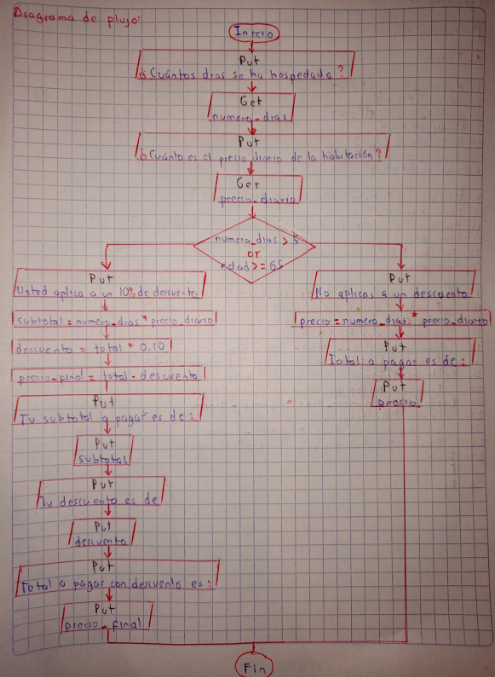 Diagrama de flujo:
Inicio
Put
¿Cuántos dias se ha hospedado?
Get
numero_dias
Put
¿Cuánto es el precio diario de la habitación?
Get
precio_diario
numero_dias > 5
or
edad >= 65
Put
Usted aplica a un 10% de descuento
subtotal = numero_dias * precio_diario
descuento = total * 0.10
precio_final = total - descuento
Put
Tu subtotal a pagar es de:
Put
subtotal
Put
Tu descuento es de
Put
descuento
Put
Total a pagar con descuento es:
Put
precio_final
Put
No aplicas a un descuento
precio = numero_dias * precio_diario
Put
Total a pagar es de:
Put
precio
Fin